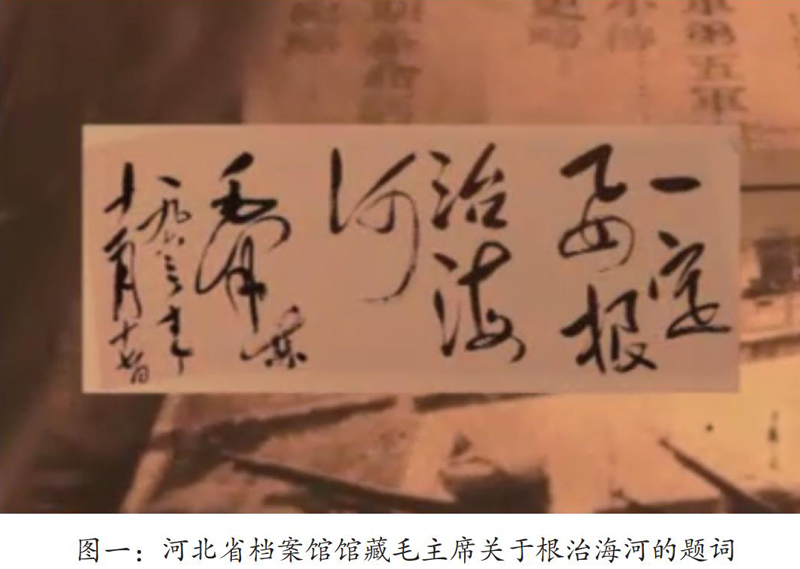 第五軍
一定
要根
治海
河
毛泽东
一九六三年
十一月十七日
图一：河北省档案馆馆藏毛主席关于根治海河的题词